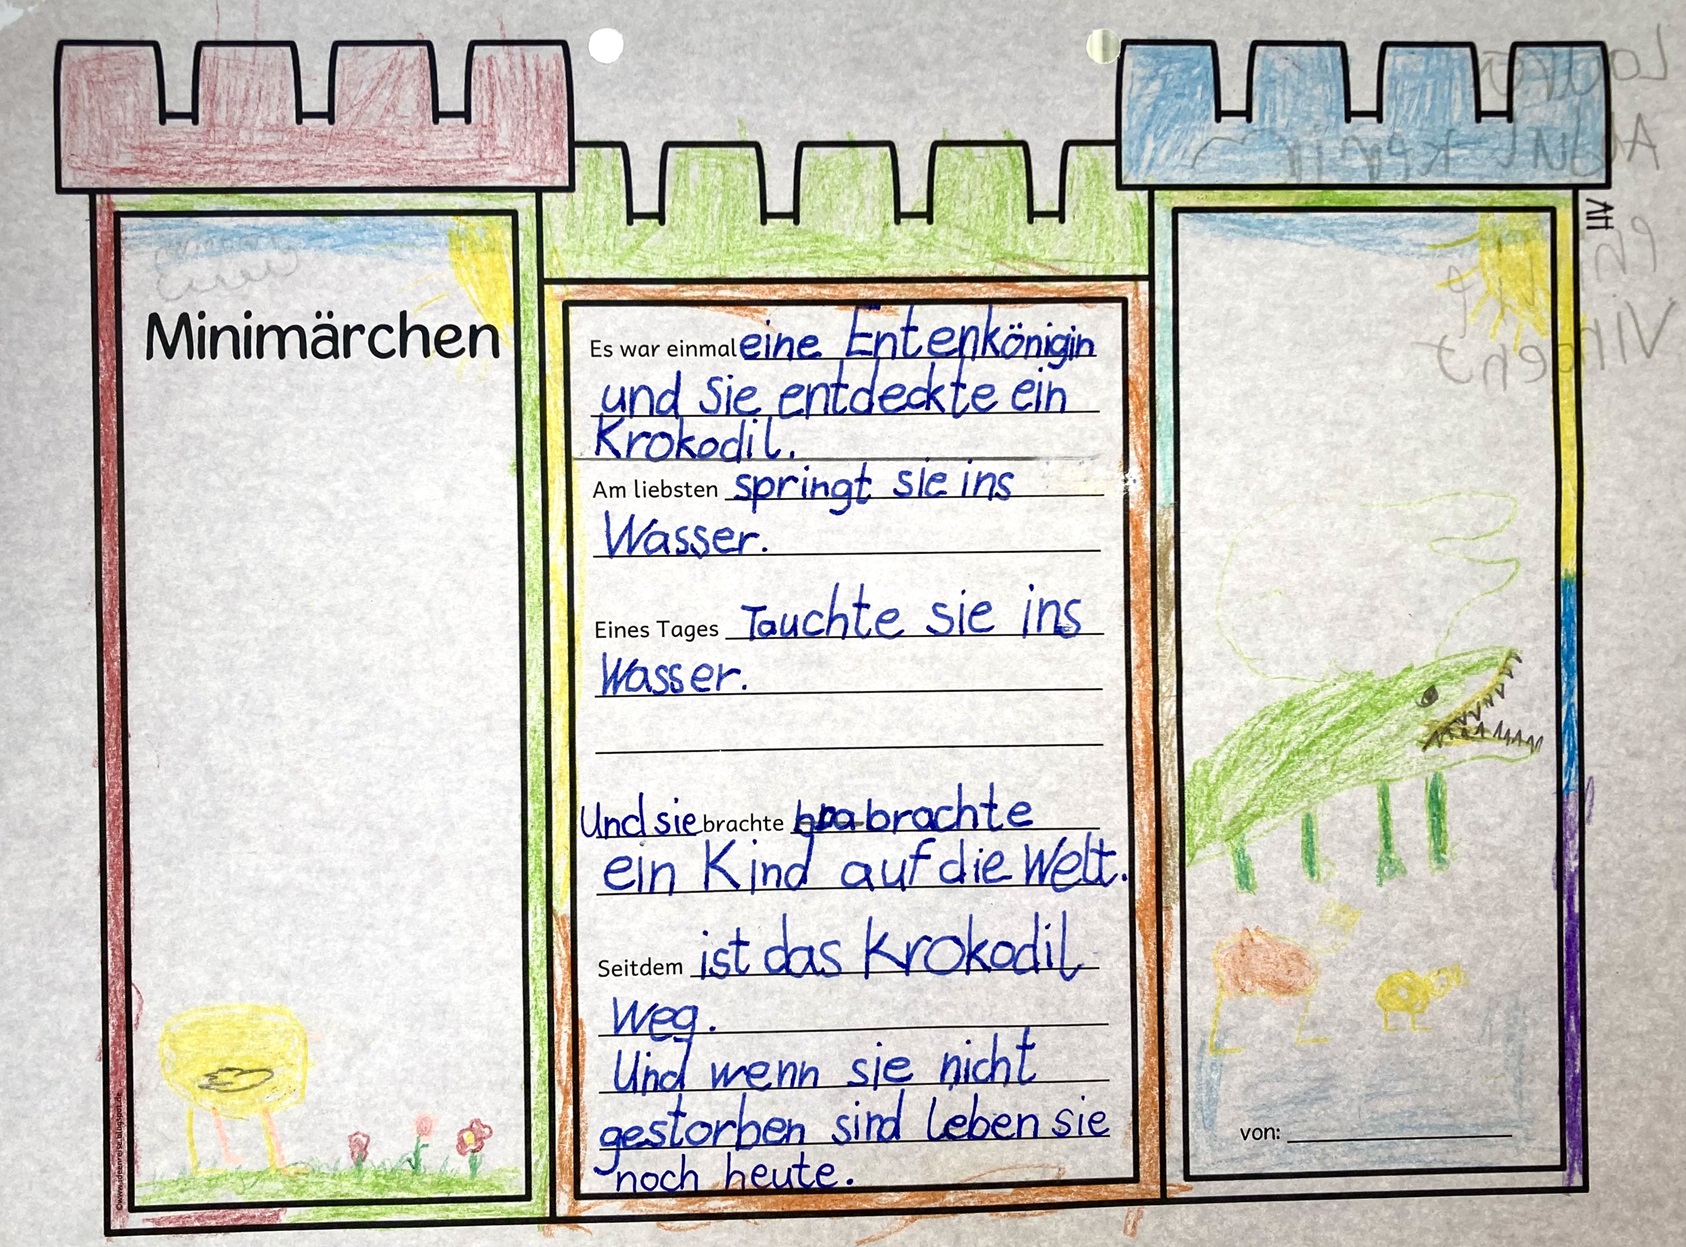 Minimärchen
Es war einmal eine Entenkönigin
und Sie entdeckte ein
Krokodil.
Am liebsten springt sie ins
Wasser.
Eines Tages Tauchte sie ins
Wasser.
Und sie brachte bra brachte
ein Kind auf die Welt.
Seitdem ist das Krokodil
Weg.
Und wenn sie nicht
gestorben sind leben sie
noch heute.
von:
Vincent
©www.ideenreise.blogspot.de